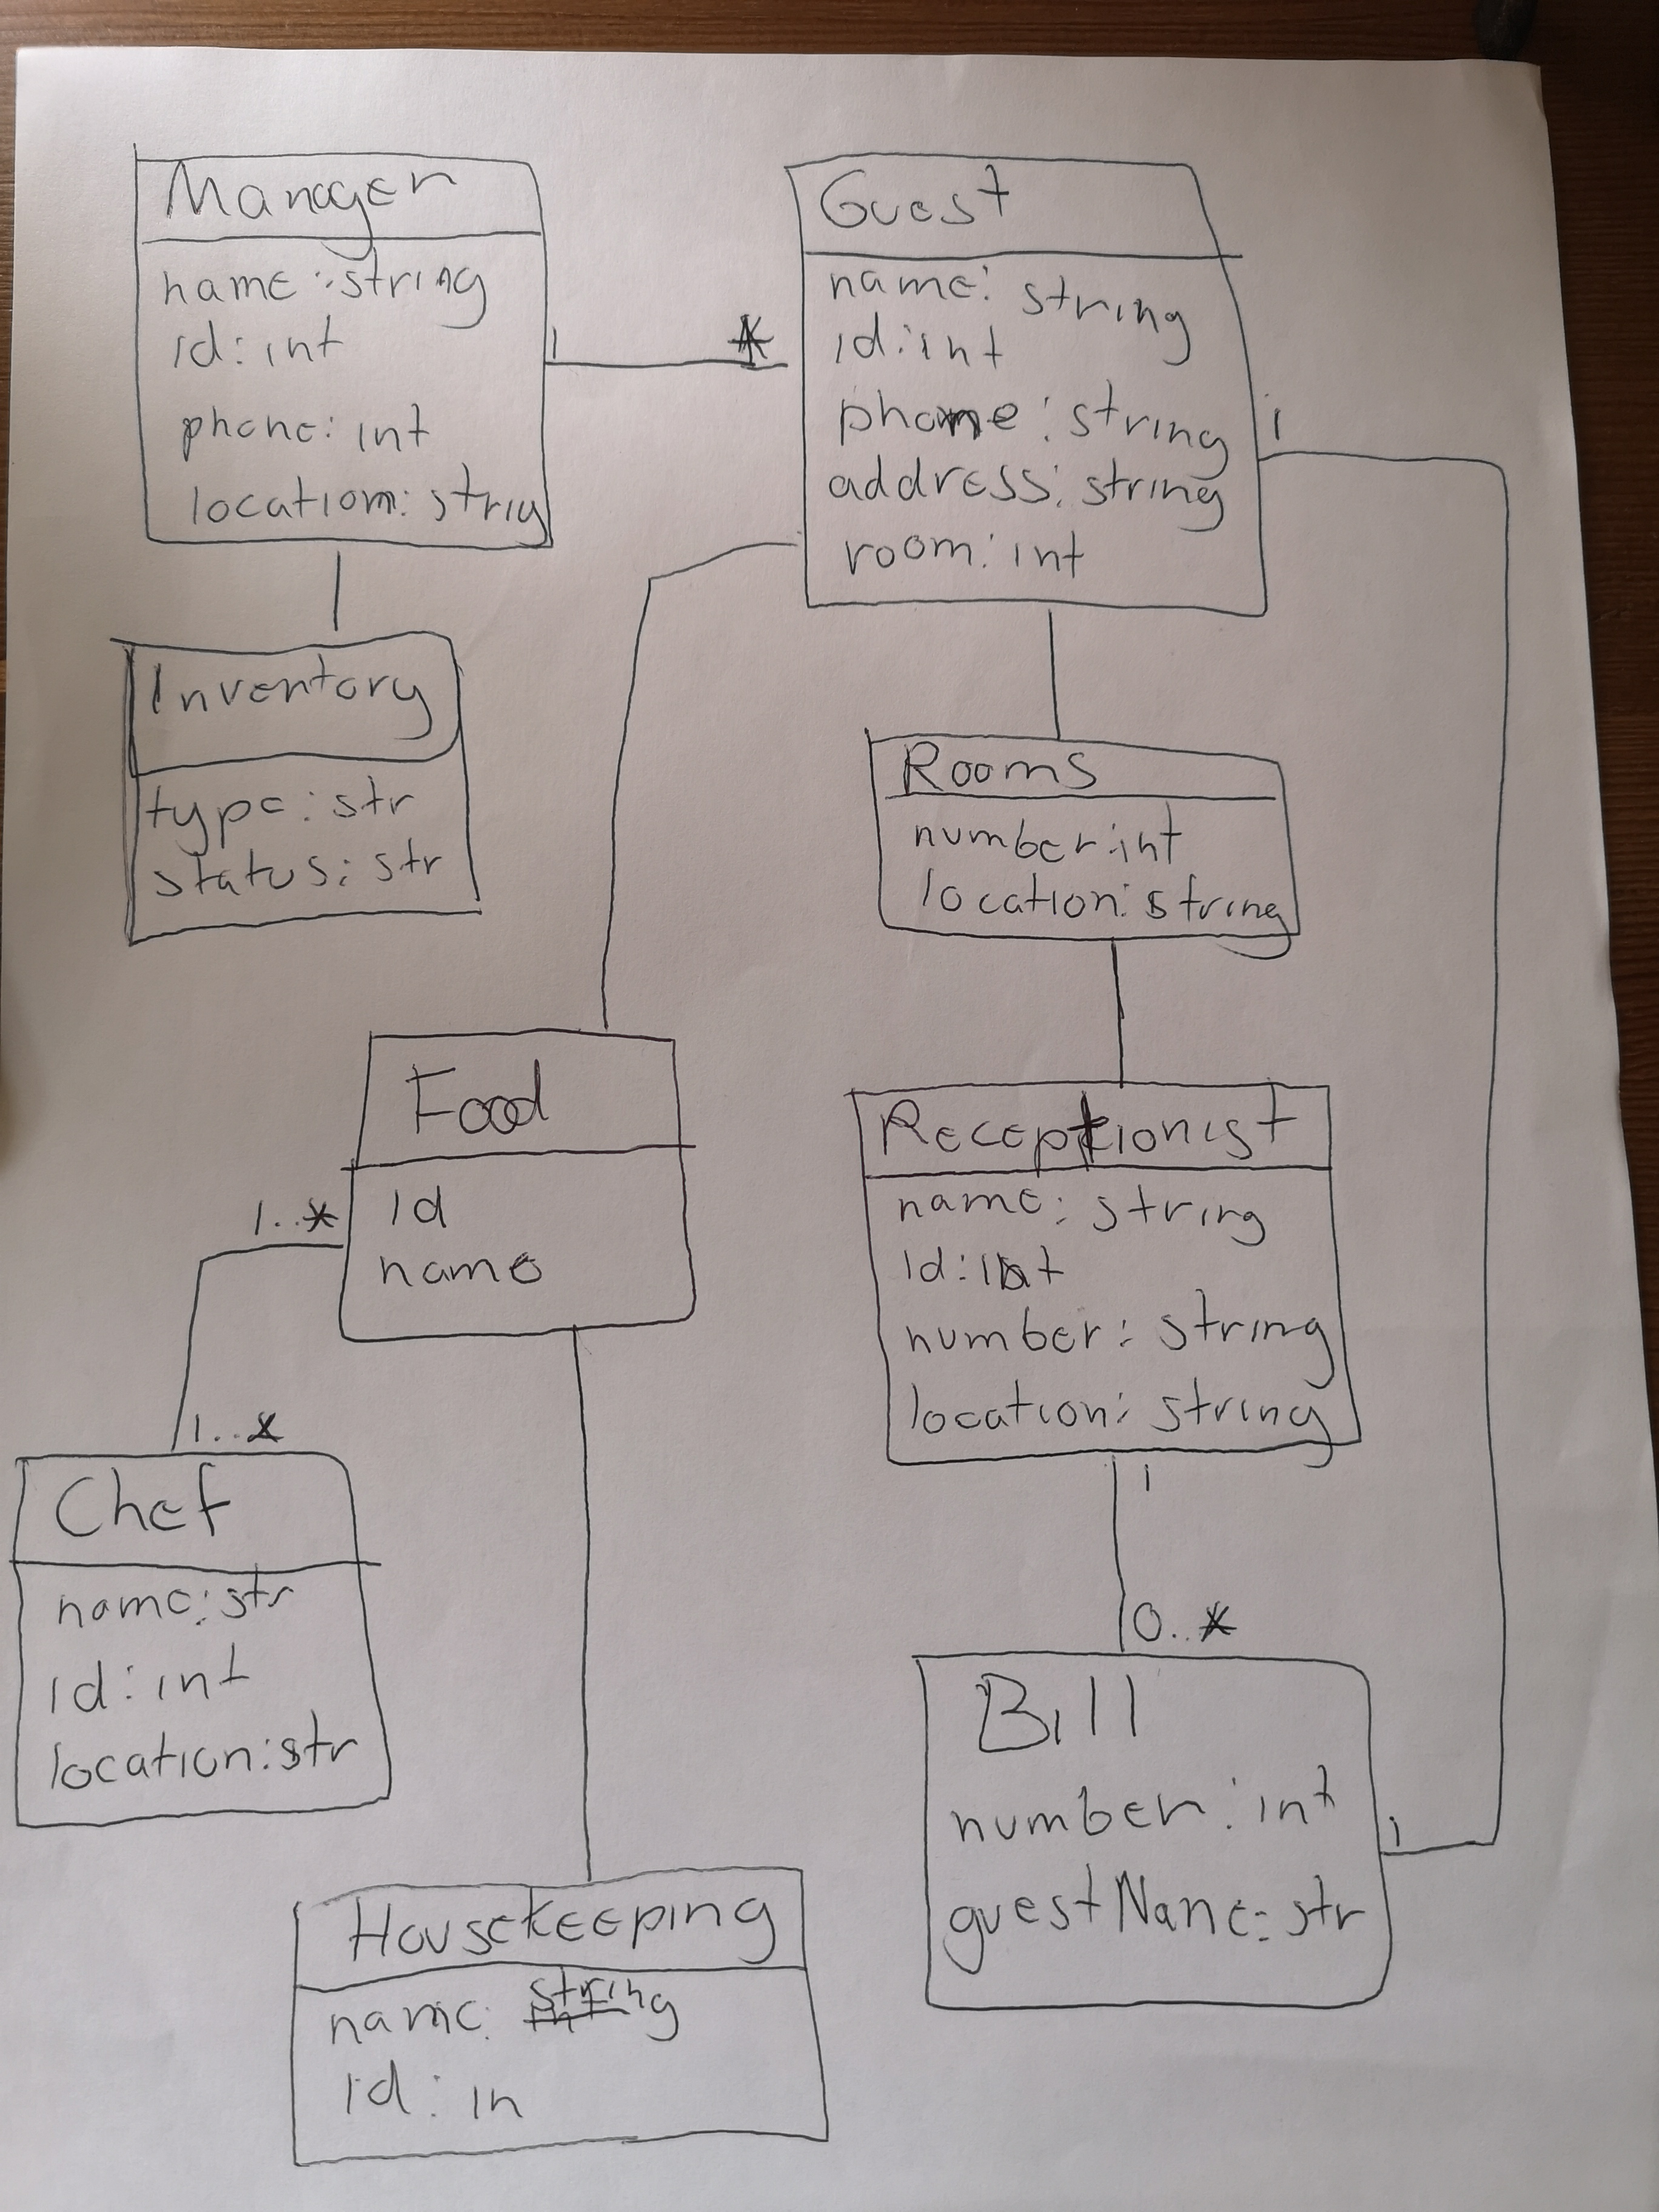 Manager
name: string
id: int
phone: int
location: strig
1
*
Guest
name: string
id: int
phone: string
address: string
room: int
1
Inventory
type: str
status: str
Rooms
number: int
location: string
Food
id
name
1..*
1..*
Receptionist
name: string
id: int
number: string
location: string
1
0..*
Chef
name: str
id: int
location: str
Bill
number: int
guestName: str
1
Housekeeping
name: string
id: in